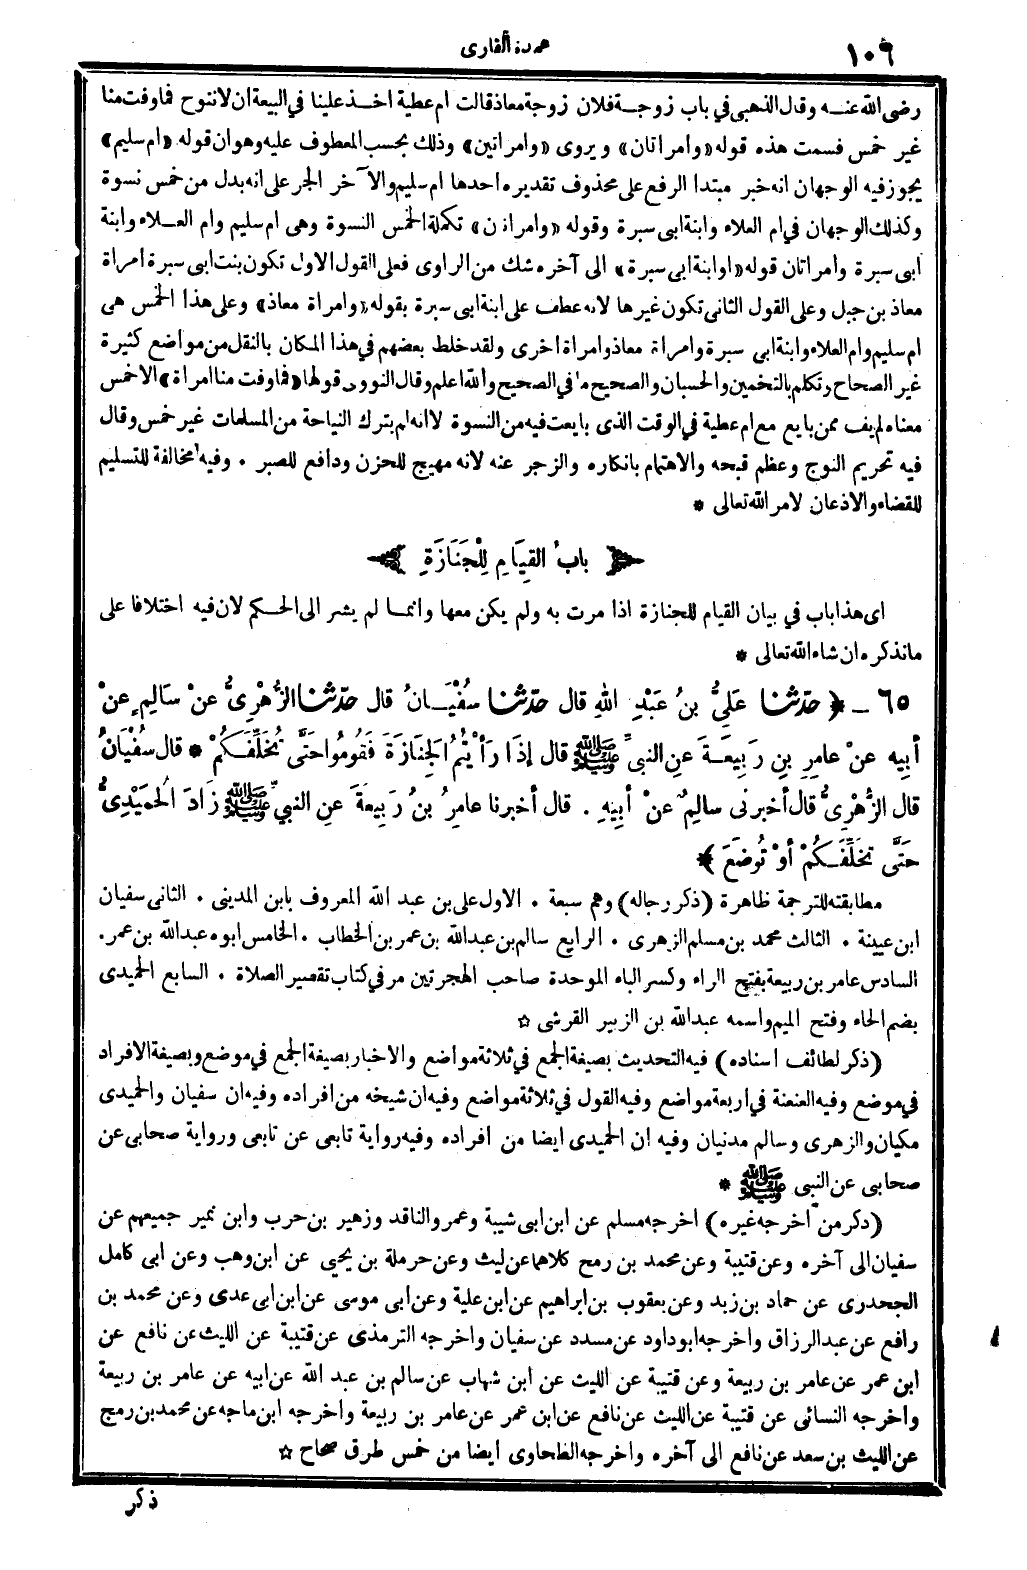 ١٠٦
عمدة القارى
رضى الله عنه وقال الذهبى في باب زوجة فلان زوجة معاذ قالت ام عطية اخذ علينا في البيعة ان لا ننوح فما وفت منا
غير خمس فسمت هذه قوله «وامراتان» ويروى «وامراتين» وذلك بحسب المعطوف عليه وهو ان قوله «ام سليم»
يجوز فيه الوجهان انه خبر مبتدا الرفع على محذوف تقديره احدها ام سليم والآخر الجر على انه بدل من خمس نسوة
وكذلك الوجهان في ام العلاء وابنة ابى سبرة وقوله «وامراتان» تكملة الخمس النسوة وهى ام سليم وام العلاء وابنة
ابى سبرة وامراتان قوله «او ابنة ابى سبرة» الى آخره شك من الراوى فعلى القول الاول تكون بنت ابى سبرة امراة
معاذ بن جبل وعلى القول الثانى تكون غيرها لانه عطف على ابنة ابى سبرة بقوله «وامراة معاذ» وعلى هذا الخمس هى
ام سليم وام العلاء وابنة ابى سبرة وامراة معاذ وامراة اخرى ولقد خلط بعضهم في هذا المكان بالنقل من مواضع كثيرة
غير الصحاح وتكلم بالتخمين والحسبان والصحيح ما في الصحيح والله اعلم وقال النووى قولها «فما وفت منا امراة» الا خمس
معناه لم يف ممن بايع مع ام عطية في الوقت الذى بايعت فيه من النسوة لا انه لم يترك النياحة من المسلمات غير خمس وقال
فيه تحريم النوح وعظم قبحه والاهتمام بانكاره والزجر عنه لانه مهيج للحزن ودافع للصبر . وفيه مخالفة للتسليم
للقضاء والاذعان لامر الله تعالى *
﴿ بابُ القِيَامِ لِلْجَنَازَةِ ﴾
اى هذا باب في بيان القيام للجنازة اذا مرت به ولم يكن معها وانما لم يشر الى الحكم لان فيه اختلافا على
ما نذكره ان شاء الله تعالى *
٦٥ ـ ﴿ حدّثنا عَلِيُّ بنُ عَبْدِ اللهِ قال حدّثنا سُفْيَانُ قال حدّثنا الزُّهْرِيُّ عنْ سَالِمٍ عنْ
أبِيهِ عنْ عامِرِ بنِ رَبِيعَةَ عنِ النبيِّ ﷺ قال إذَا رَأيْتُمُ الجِنَازَةَ فَقُومُوا حَتَّى تُخَلِّفَكُمْ * قال سُفْيَانُ
قال الزُّهْرِيُّ قال أخبرنى سالِمٌ عنْ أبِيهِ . قال أخبرنا عامِرُ بنُ رَبِيعَةَ عنِ النبيِّ ﷺ زَادَ الحُمَيْدِيُّ
حَتَّى تُخَلِّفَكُمْ أوْ تُوضَعَ ﴾
مطابقته للترجمة ظاهرة (ذكر رجاله) وهم سبعة . الاول على بن عبد الله المعروف بابن المدينى . الثانى سفيان
ابن عيينة . الثالث محمد بن مسلم الزهرى . الرابع سالم بن عبدالله بن عمر بن الخطاب . الخامس ابوه عبدالله بن عمر .
السادس عامر بن ربيعة بفتح الراء وكسر الباء الموحدة صاحب الهجرتين مر في كتاب تقصير الصلاة . السابع الحميدى
بضم الحاء وفتح الميم واسمه عبدالله بن الزبير القرشى ☆
(ذكر لطائف اسناده) فيه التحديث بصيغة الجمع في ثلاثة مواضع والاخبار بصيغة الجمع في موضع وبصيغة الافراد
في موضع وفيه العنعنة في اربعة مواضع وفيه القول في ثلاثة مواضع وفيه ان شيخه من افراده وفيه ان سفيان والحميدى
مكيان والزهرى وسالم مدنيان وفيه ان الحميدى ايضا من افراده وفيه رواية تابعى عن تابعى ورواية صحابى عن
صحابى عن النبى ﷺ *
(ذكر من اخرجه غيره) اخرجه مسلم عن ابن ابى شيبة وعمرو الناقد وزهير بن حرب وابن نمير جميعهم عن
سفيان الى آخره وعن قتيبة وعن محمد بن رمح كلاهما عن ليث وعن حرملة بن يحيى عن ابن وهب وعن ابى كامل
الجحدرى عن حماد بن زيد وعن يعقوب بن ابراهيم عن ابن علية وعن ابى موسى عن ابن ابى عدى وعن محمد بن
رافع عن عبد الرزاق واخرجه ابو داود عن مسدد عن سفيان واخرجه الترمذى عن قتيبة عن الليث عن نافع عن
ابن عمر عن عامر بن ربيعة وعن قتيبة عن الليث عن ابن شهاب عن سالم بن عبد الله عن ابيه عن عامر بن ربيعة
واخرجه النسائى عن قتيبة عن الليث عن نافع عن ابن عمر عن عامر بن ربيعة واخرجه ابن ماجه عن محمد بن رمح
عن الليث بن سعد عن نافع الى آخره واخرجه الطحاوى ايضا من خمس طرق صحاح ☆
ذكر